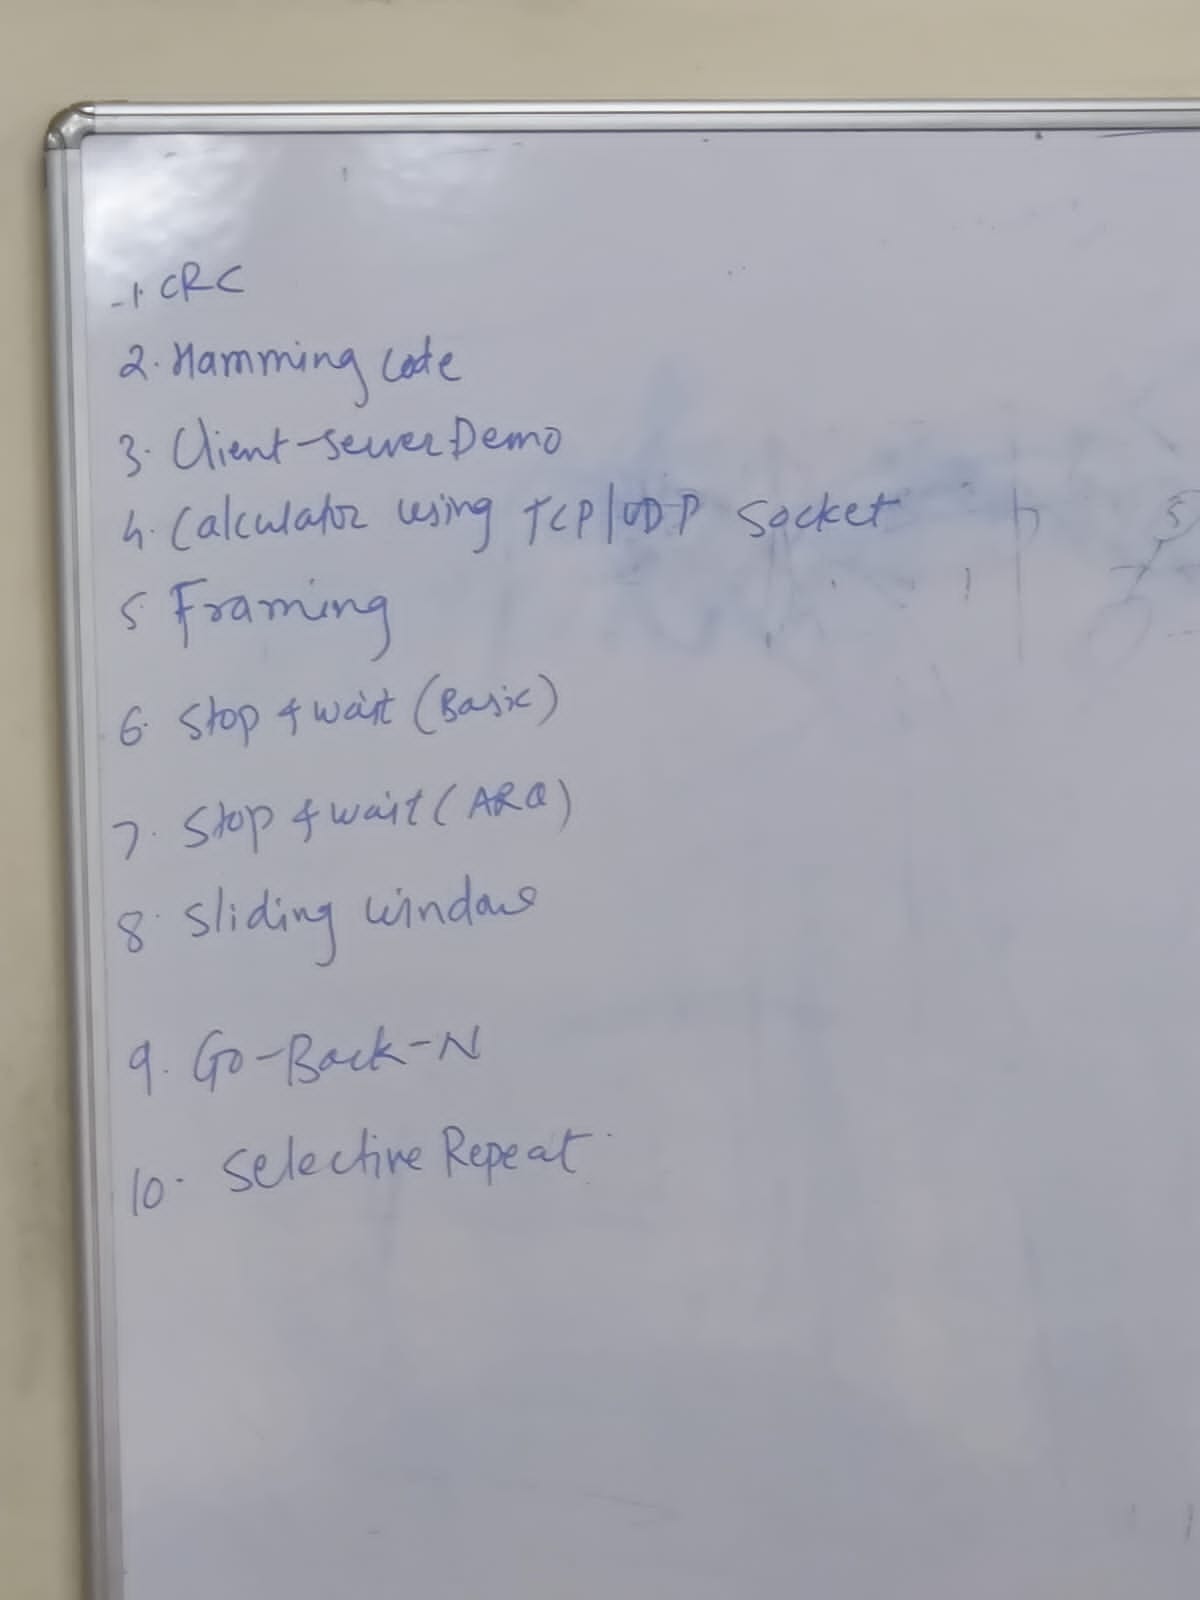 1. CRC
2. Hamming Code
3. Client-Server Demo
4. Calculator using TCP/UDP Socket
5. Framing
6. Stop & wait (Basic)
7. Stop & wait (ARQ)
8. Sliding window
9. Go-Back-N
10. Selective Repeat